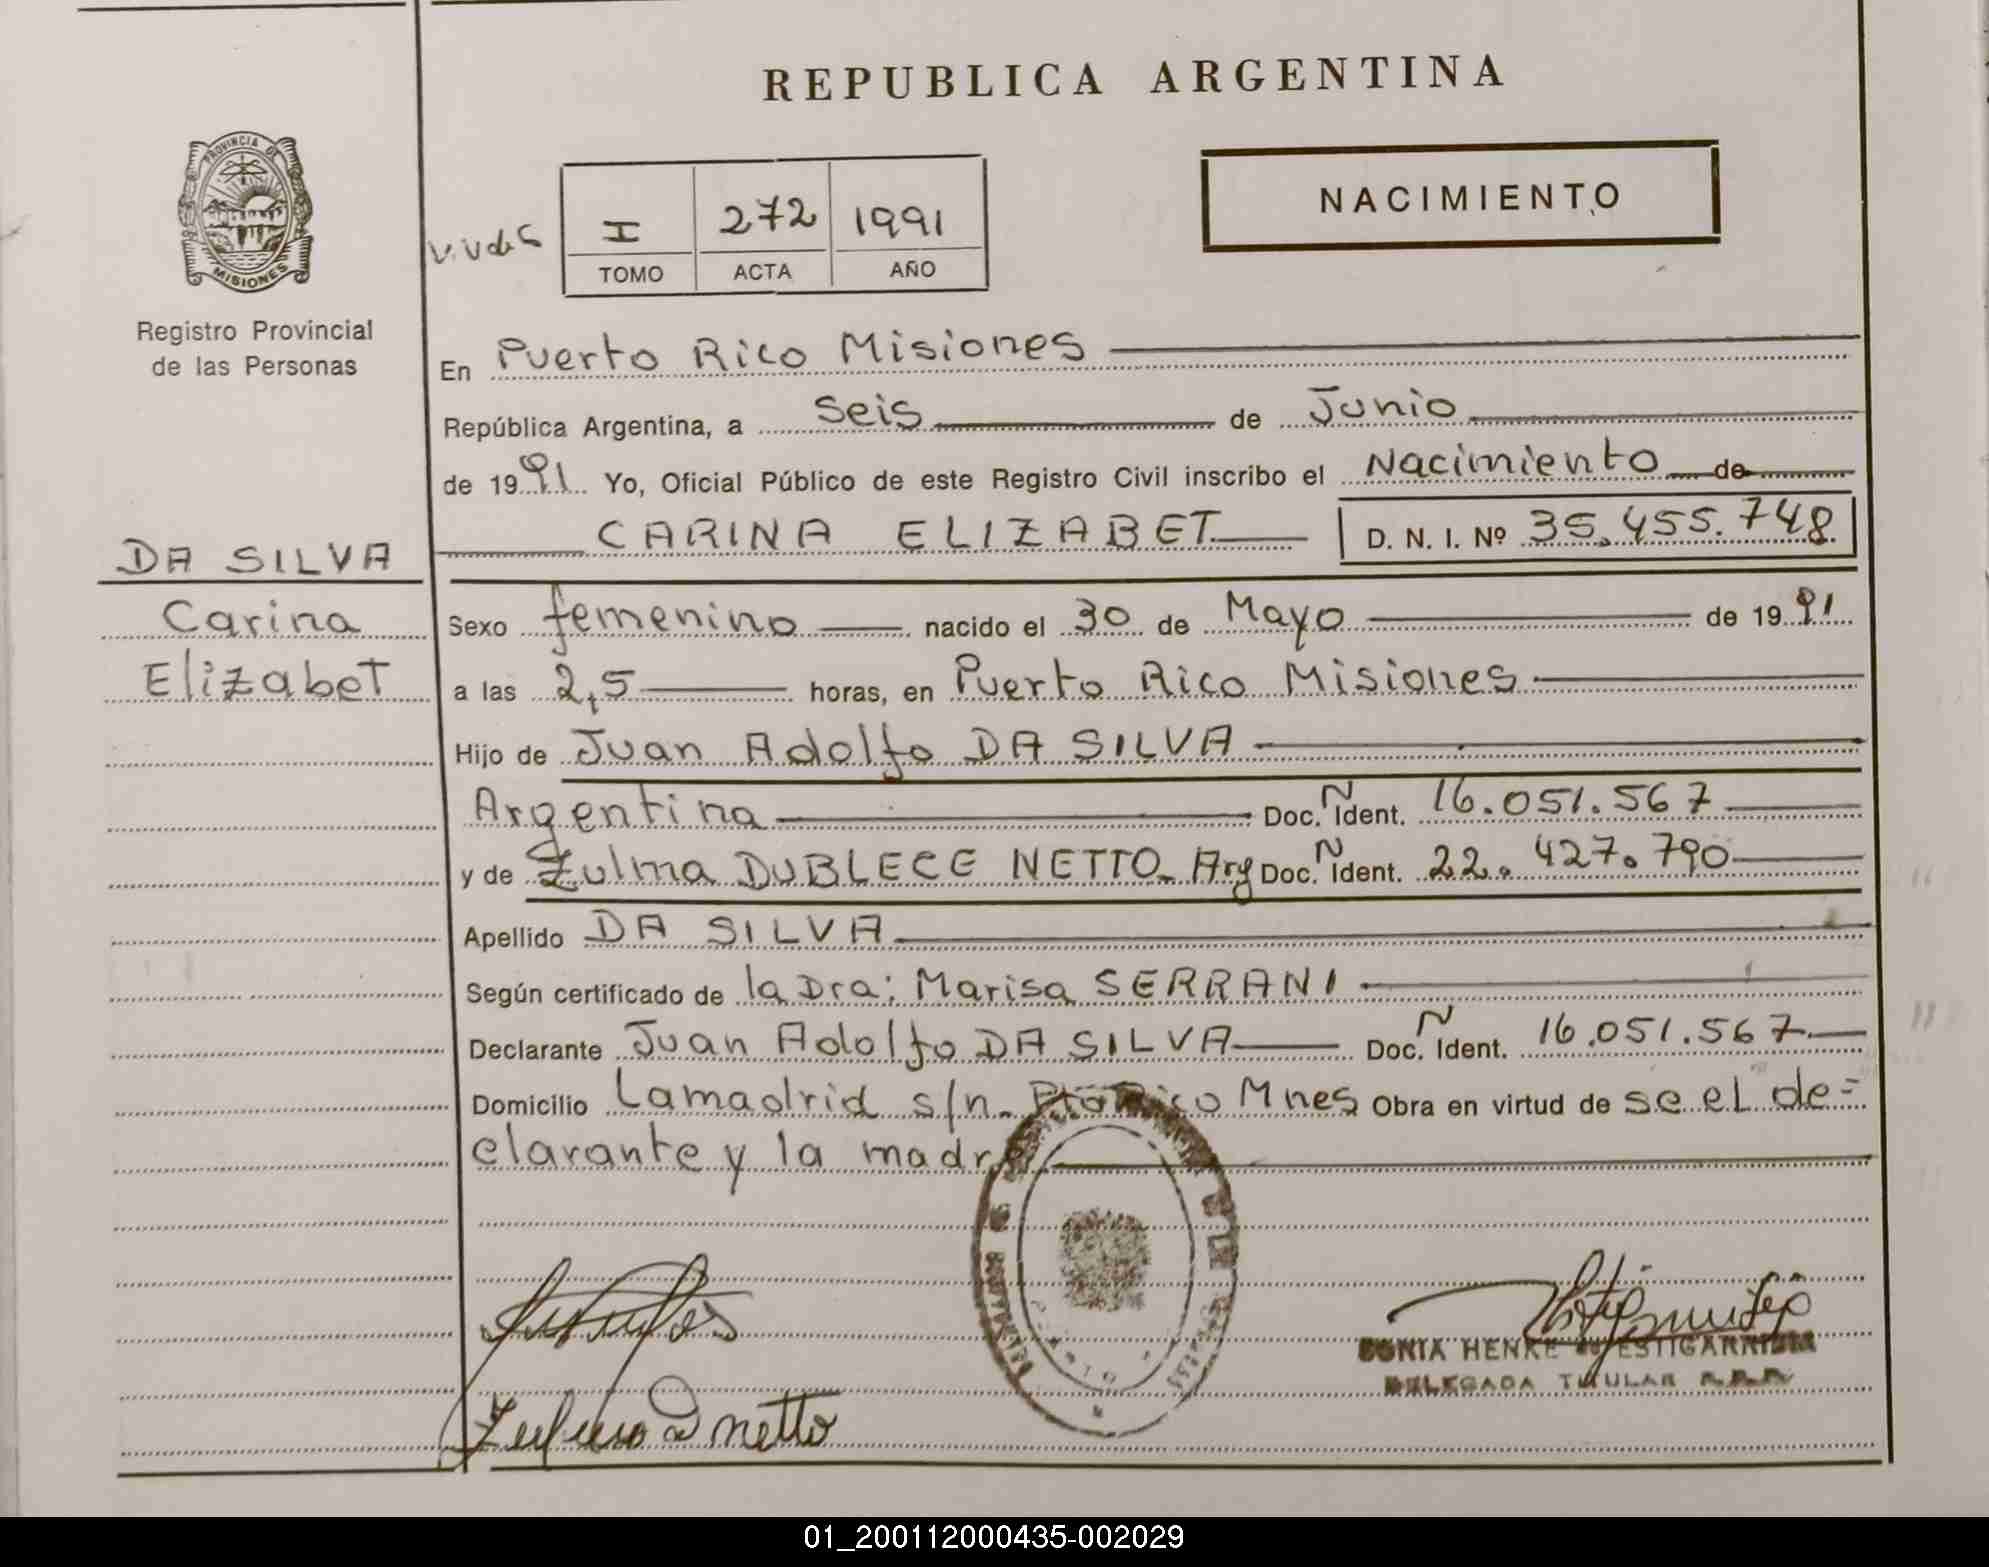 REPUBLICA ARGENTINA
PROVINCIA DE
MISIONES
Registro Provincial
de las Personas
I 272 1991
TOMO ACTA AÑO
NACIMIENTO
En Puerto Rico Misiones
República Argentina, a seis de Junio
de 1991 Yo, Oficial Público de este Registro Civil inscribo el Nacimiento de
CARINA ELIZABET D. N. I. Nº 35.455.748
DA SILVA
Carina
Elizabet
Sexo femenino nacido el 30 de Mayo de 1991
a las 2,5 horas, en Puerto Rico Misiones
Hijo de Juan Adolfo DA SILVA
Argentina Doc. Ñ Ident. 16.051.567
y de Zulma DUBLECE NETTO_ Arg Doc. Ñ Ident. 22.427.790
Apellido DA SILVA
Según certificado de la Dra: Marisa SERRANI
Declarante Juan Adolfo DA SILVA Doc. Ñ Ident. 16.051.567
Domicilio Lamadrid s/n. Pto Rico Mnes Obra en virtud de se el de=
clarante y la madre
netto
SONIA HENKE
DELEGADA TITULAR
01_200112000435-002029